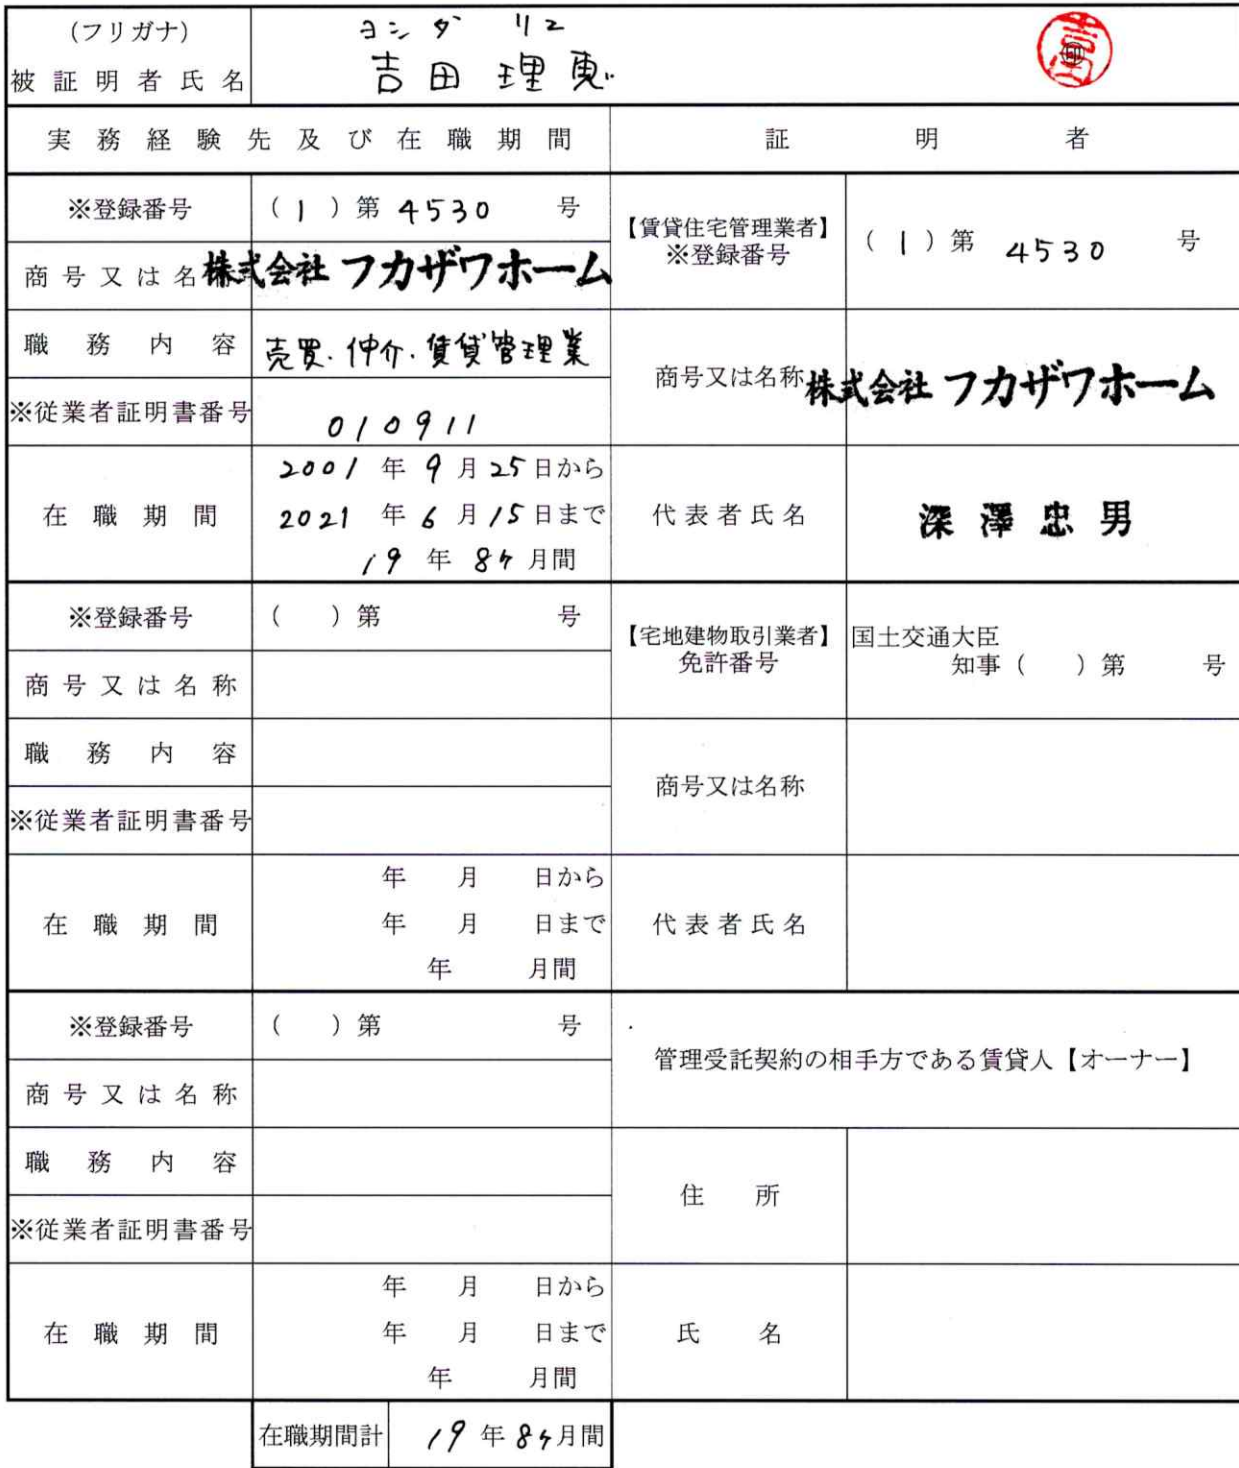 (フリガナ) ヨシダ リエ
被証明者氏名 吉田 理恵 印
実務経験先及び在職期間 証明者
※登録番号 (1)第 4530 号
商号又は名称 株式会社 フカザワホーム
職務内容 売買.仲介.賃貸管理業
※従業者証明書番号 010911
在職期間 2001 年 9 月 25 日から
2021 年 6 月 15 日まで
19 年 8ヶ月間
【賃貸住宅管理業者】
※登録番号 (1)第 4530 号
商号又は名称 株式会社 フカザワホーム
代表者氏名 深澤忠男
※登録番号 ( )第 号
商号又は名称
職務内容
※従業者証明書番号
在職期間 年 月 日から
年 月 日まで
年 月間
【宅地建物取引業者】
免許番号 国土交通大臣
知事( )第 号
商号又は名称
代表者氏名
※登録番号 ( )第 号
商号又は名称
職務内容
※従業者証明書番号
在職期間 年 月 日から
年 月 日まで
年 月間
管理受託契約の相手方である賃貸人【オーナー】
住所
氏名
在職期間計 19 年 8ヶ月間